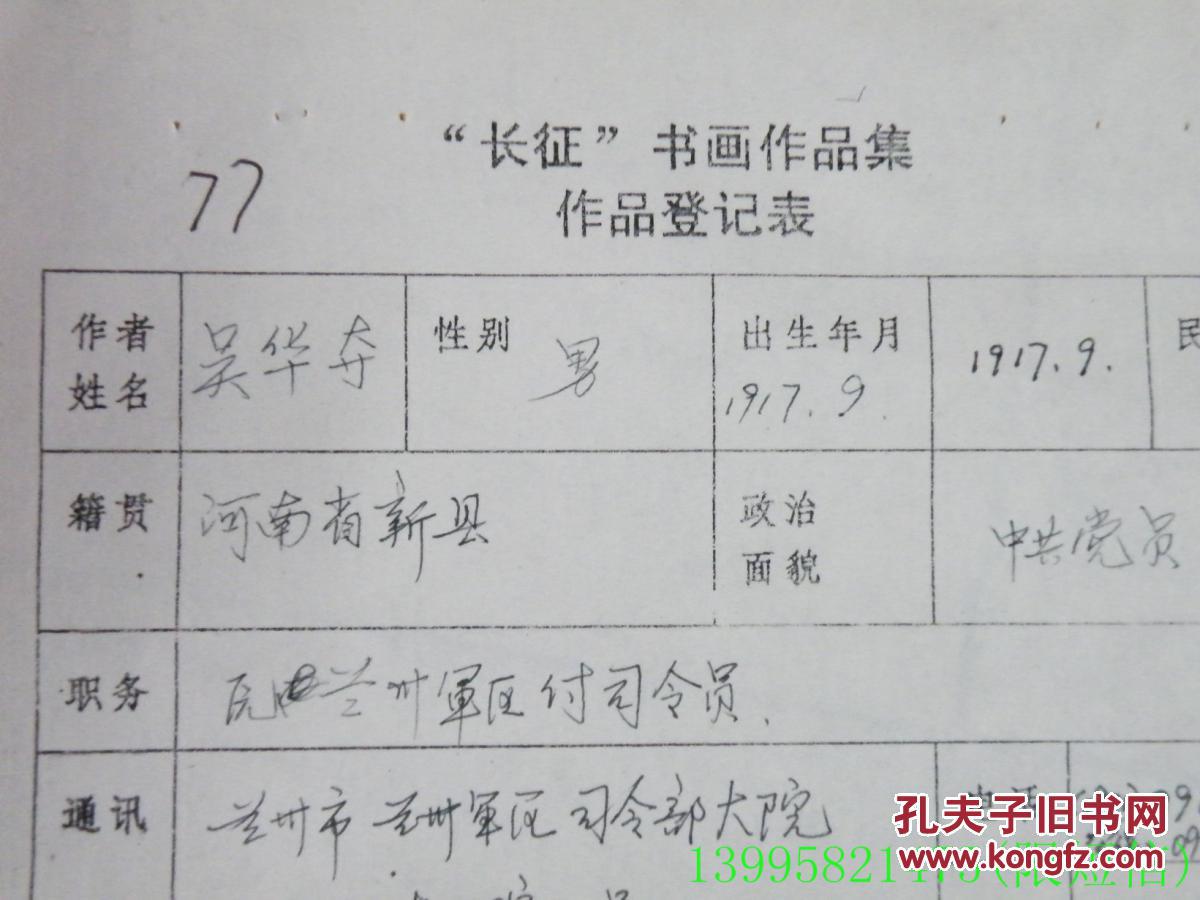 “长征”书画作品集
77
作品登记表
作者姓名 吴华夺 性别 男 出生年月 1917.9. 1917.9. 民
籍贯 河南省新县 政治面貌 中共党员
职务 兰州軍区付司令员.
通讯 兰州市 兰州軍区司令部大院 电话
孔夫子旧书网
www.kongfz.com